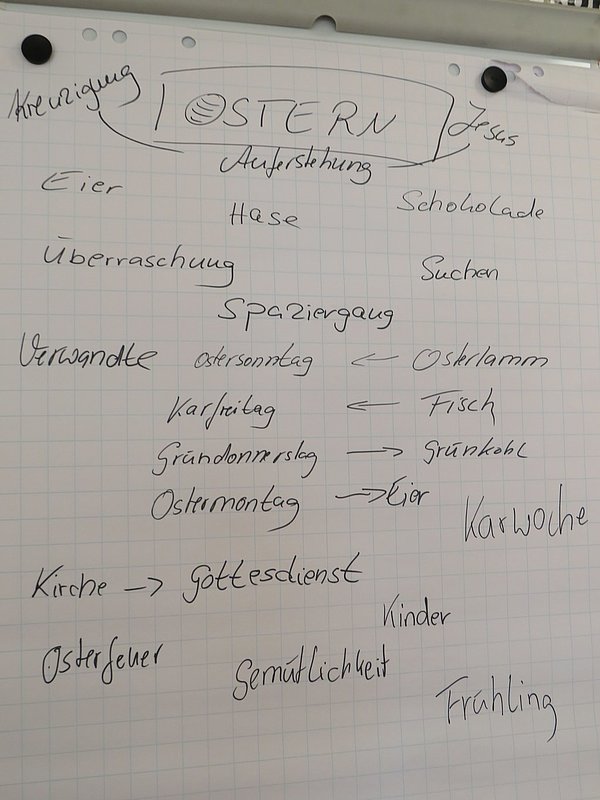 Kreuzigung
OSTERN
Jesus
Auferstehung
Eier
Schokolade
Hase
Überraschung
Suchen
Spaziergang
Verwandte Ostersonntag <- Osterlamm
Karfreitag <- Fisch
Gründonnerstag -> Grünkohl
Ostermontag -> Eier
Karwoche
Kirche -> Gottesdienst
Kinder
Osterfeuer
Gemütlichkeit
Frühling